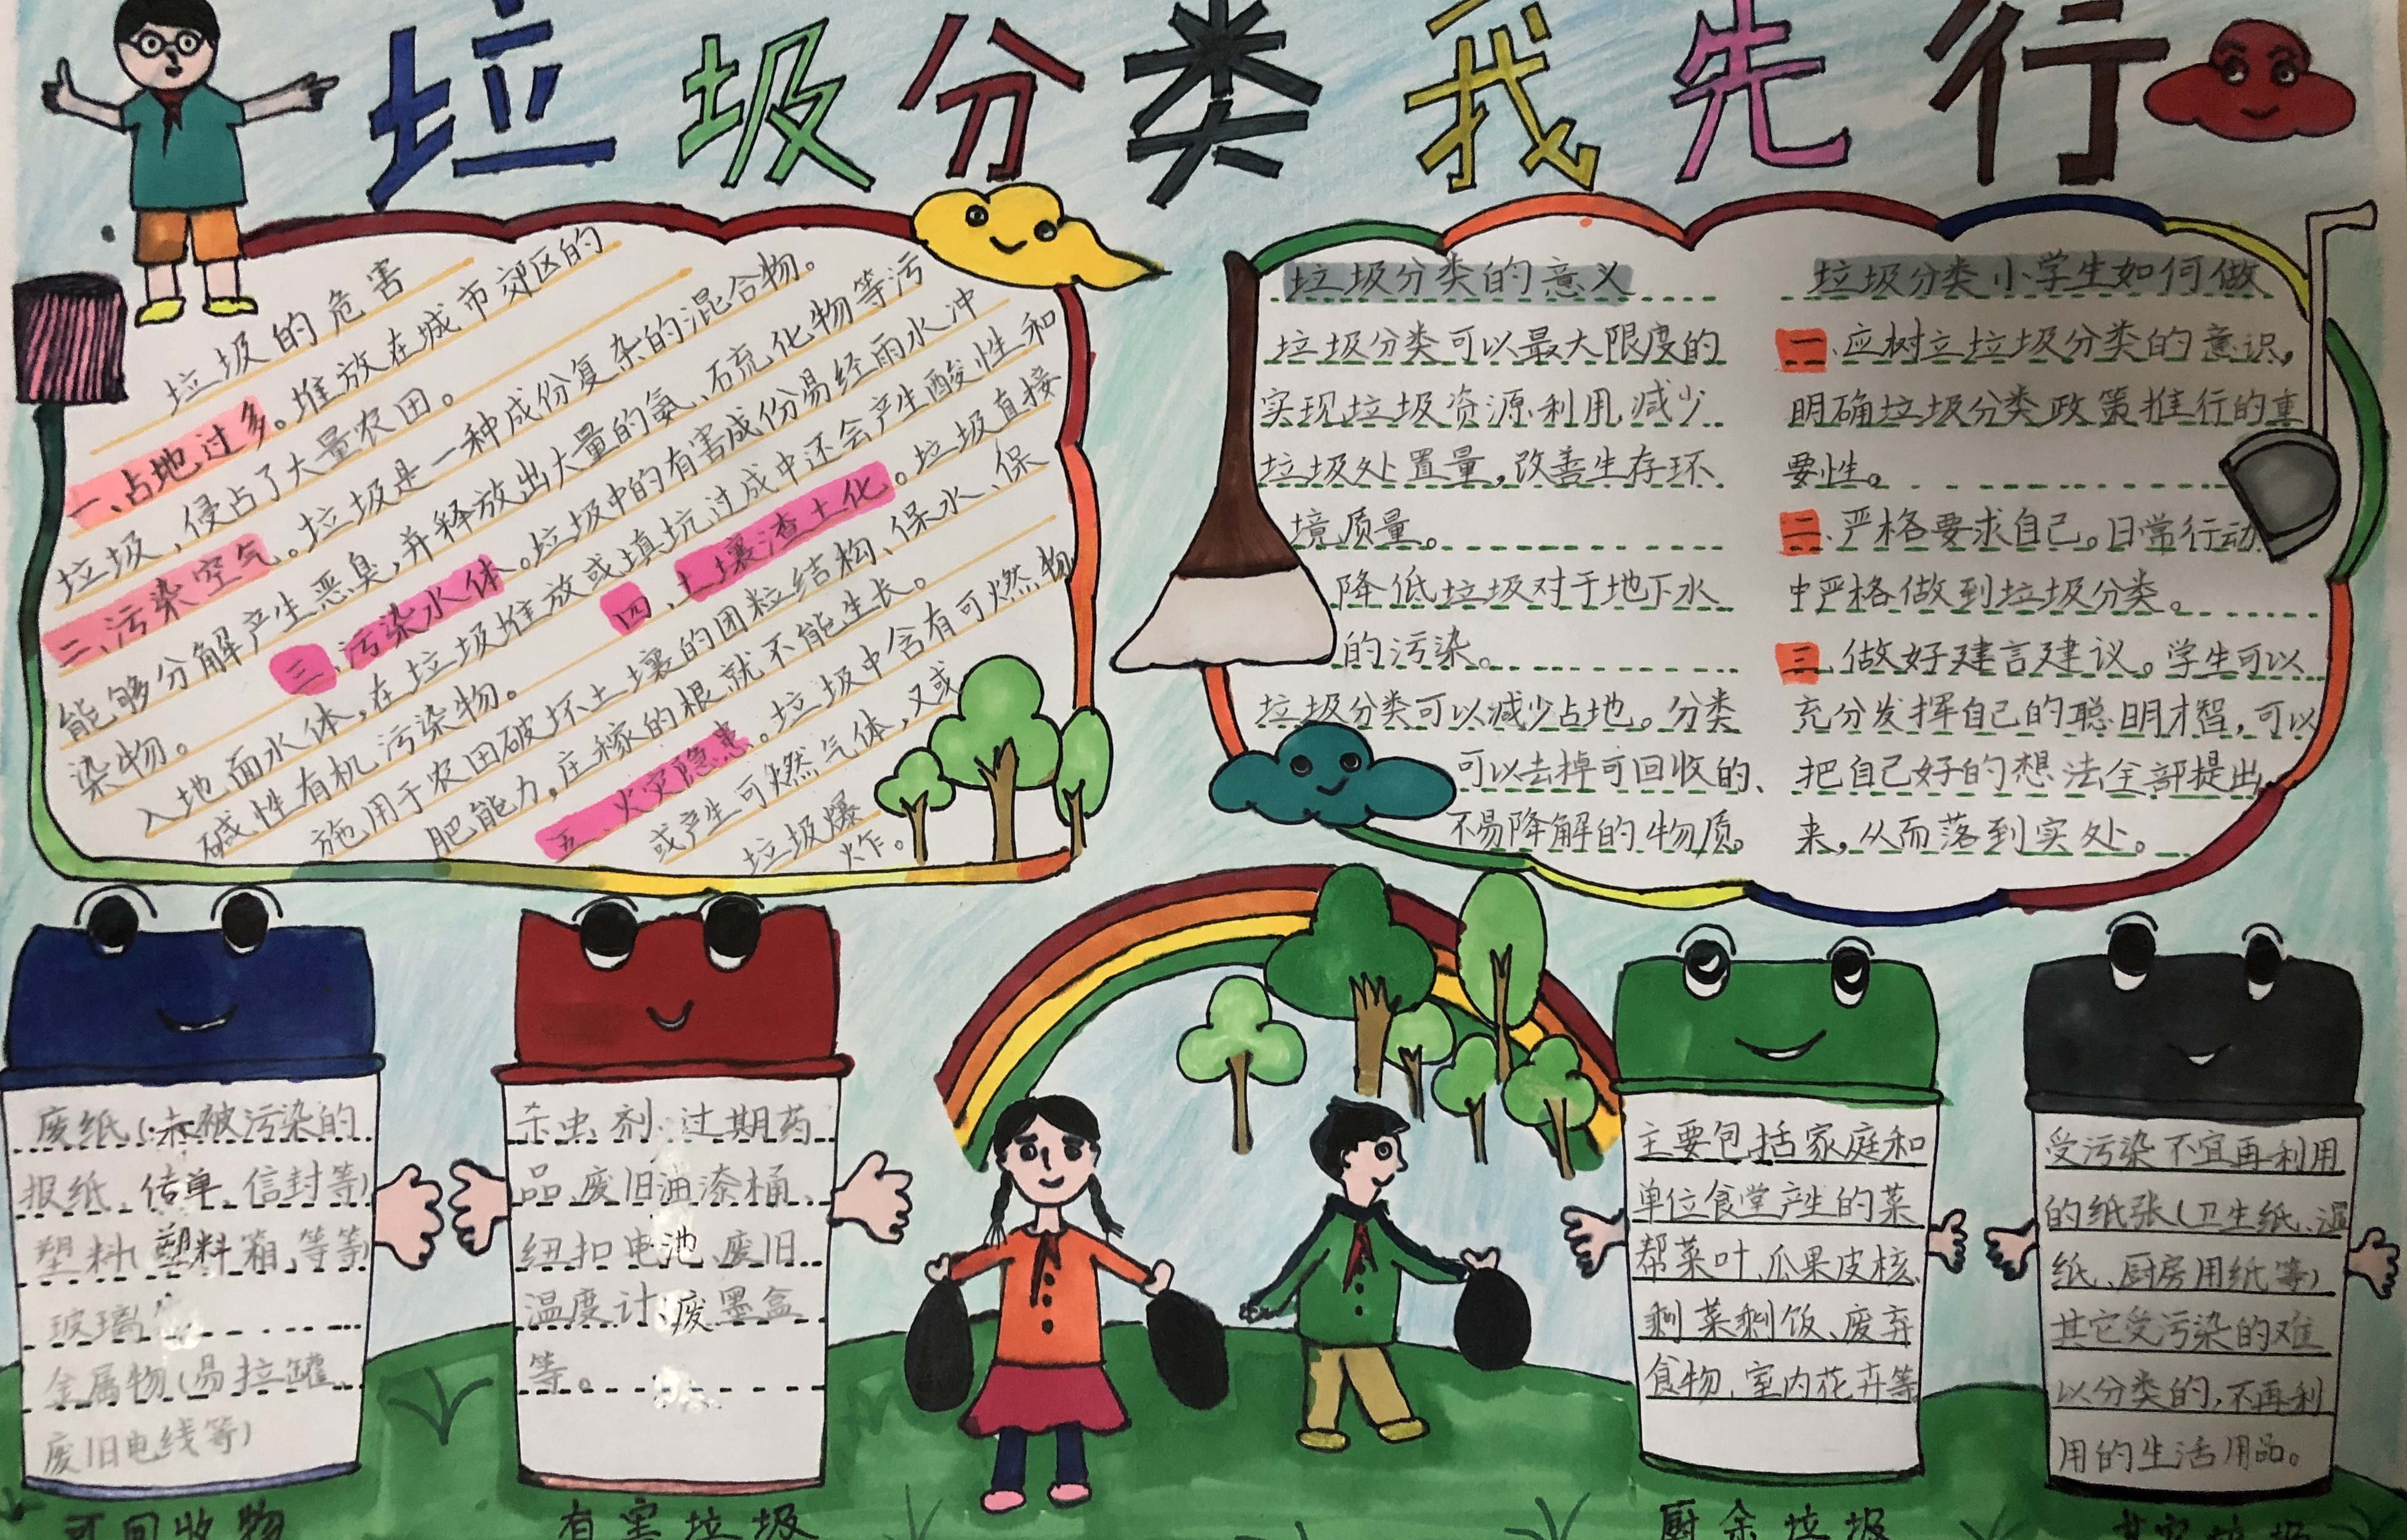 垃圾分类我先行
垃圾的危害
一、占地过多。堆放在城市郊区的
垃圾,侵占了大量农田。
二、污染空气。垃圾是一种成份复杂的混合物。
能够分解产生恶臭,并释放出大量的氨、石流化物等污
染物。
三、污染水体。垃圾中的有害成份易经雨水冲
入地面水体,在垃圾堆放或填坑过成中还会产生酸性和
碱性有机污染物。
四、土壤渣土化。垃圾直接
施用于农田破坏土壤的团粒结构、保水、保
肥能力,庄稼的根就不能生长。
五、火灾隐患。垃圾中含有可燃物
或产生可燃气体,又或
垃圾爆
炸。
垃圾分类的意义
垃圾分类可以最大限度的
实现垃圾资源利用,减少
垃圾处置量,改善生存环
境质量。
降低垃圾对于地下水
的污染。
垃圾分类可以减少占地。分类
可以去掉可回收的、
不易降解的物质。
垃圾分类小学生如何做
一、应树立垃圾分类的意识,
明确垃圾分类政策推行的重
要性。
二、严格要求自己。日常行动
中严格做到垃圾分类。
三、做好建言建议。学生可以
充分发挥自己的聪明才智,可以
把自己好的想法全部提出
来,从而落到实处。
废纸(未被污染的
报纸、传单、信封等)
塑料(塑料箱、等等)
玻璃(
金属物(易拉罐、
废旧电线等)
可回收物
杀虫剂、过期药
品、废旧油漆桶、
纽扣电池、废旧
温度计、废墨盒
等。
有害垃圾
主要包括家庭和
单位食堂产生的菜
帮菜叶、瓜果皮核、
剩菜剩饭、废弃
食物、室内花卉等
厨余垃圾
受污染不宜再利用
的纸张(卫生纸、湿
纸、厨房用纸等)
其它受污染的难
以分类的,不再利
用的生活用品。